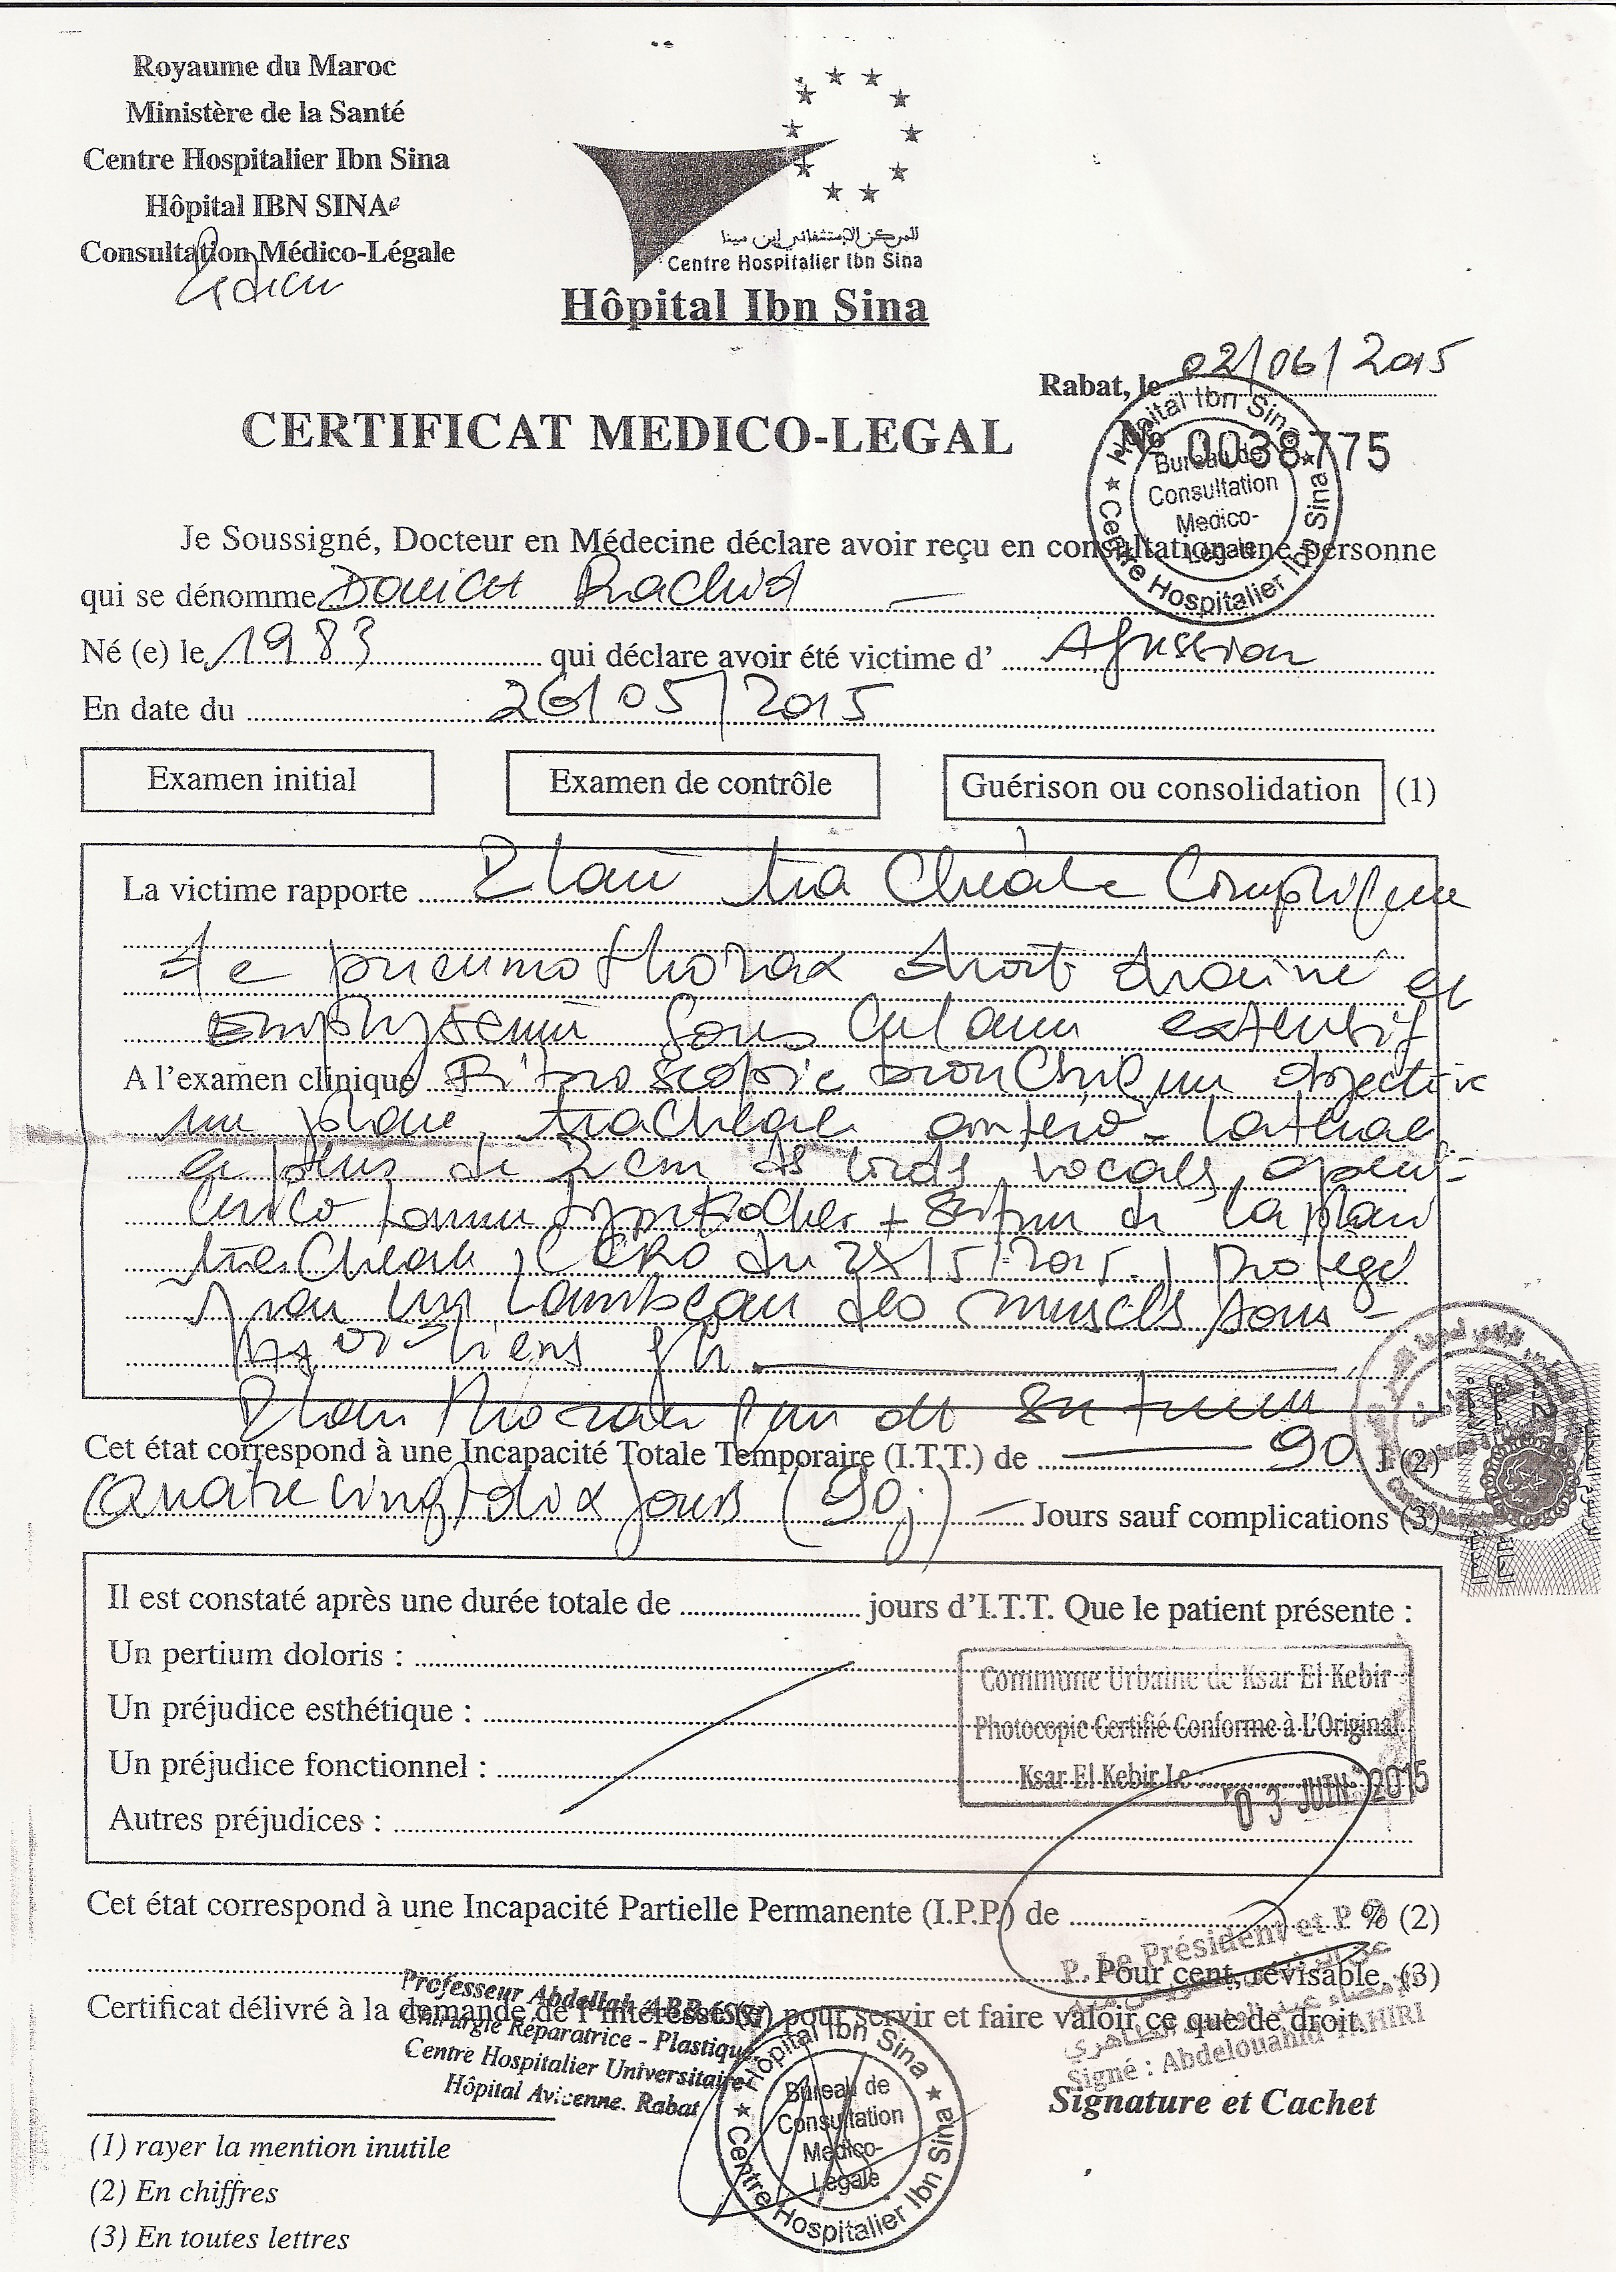 Royaume du Maroc
Ministère de la Santé
Centre Hospitalier Ibn Sina
Hôpital IBN SINA
Consultation Médico-Légale
المركز الاستشفائي ابن سينا
Centre Hospitalier Ibn Sina
Hôpital Ibn Sina
Rabat, le 02/06/2015
CERTIFICAT MEDICO-LEGAL
No 0038775
Hôpital Ibn Sina
Bureau de
Consultation
Medico-
Légale
Centre Hospitalier Ibn Sina
Je Soussigné, Docteur en Médecine déclare avoir reçu en consultation une personne
qui se dénomme Rachid
Né (e) le 1983 qui déclare avoir été victime d' Agression
En date du 26/05/2015
Examen initial
Examen de contrôle
Guérison ou consolidation (1)
La victime rapporte Plaie trachéale
de pneumothorax droit drainé et
emphysème sous cutané extensif
A l'examen clinique bronchique objective
une plaie trachéale antéro-latérale
à plus de 2 cm des cords vocals,
+ suture de la plaie
trachéale, du 28/5/2015, protégé
par un lambeau des muscles sous-
hyoïdiens
Plaie
Cet état correspond à une Incapacité Totale Temporaire (I.T.T.) de 90 J (2)
Quatre vingt dix jours (90j) Jours sauf complications (3)
Il est constaté après une durée totale de jours d'I.T.T. Que le patient présente :
Un pertium doloris :
Un préjudice esthétique :
Un préjudice fonctionnel :
Autres préjudices :
Commune Urbaine de Ksar El Kebir
Photocopie Certifié Conforme à L'Original
Ksar El Kebir Le
03 JUIN 2015
Cet état correspond à une Incapacité Partielle Permanente (I.P.P.) de % (2)
Pour cent, révisable. (3)
P. Le Président et P.
Signé : Abdelouahid TAHIRI
Certificat délivré à la demande de l'intéressé(e) pour servir et faire valoir ce que de droit.
Professeur Abdellah
Chirurgie Réparatrice - Plastique
Centre Hospitalier Universitaire
Hôpital Avicenne. Rabat
Hôpital Ibn Sina
Bureau de
Consultation
Medico-
Légale
Centre Hospitalier Ibn Sina
Signature et Cachet
(1) rayer la mention inutile
(2) En chiffres
(3) En toutes lettres